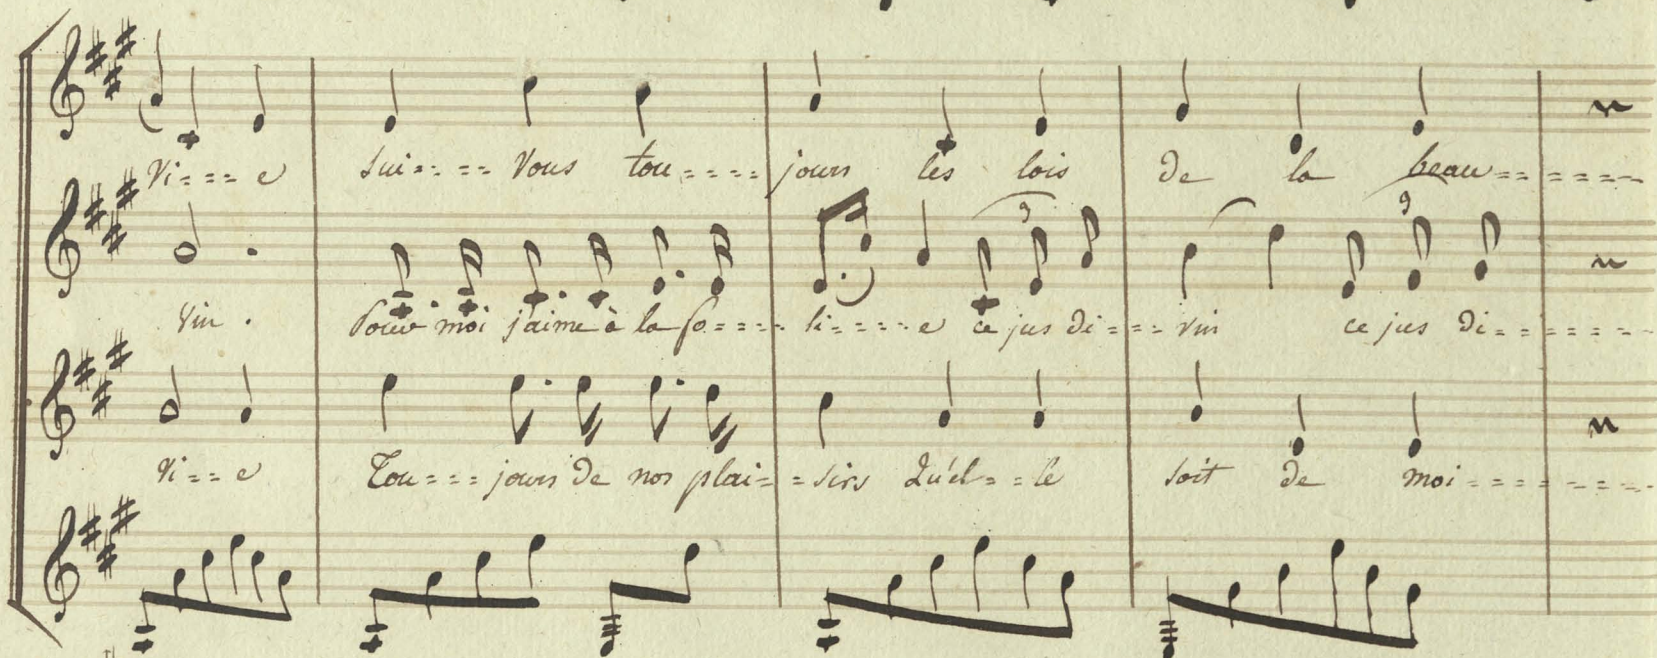 Vi---e Sui---- Vous tou---- jours les lois de la beau------
Vin. Pour moi j'aime à la fo---- li----e ce jus di--- vin ce jus di------
Vi--e Tou---jours de nos plai--sirs Qu'el--le soit de moi------